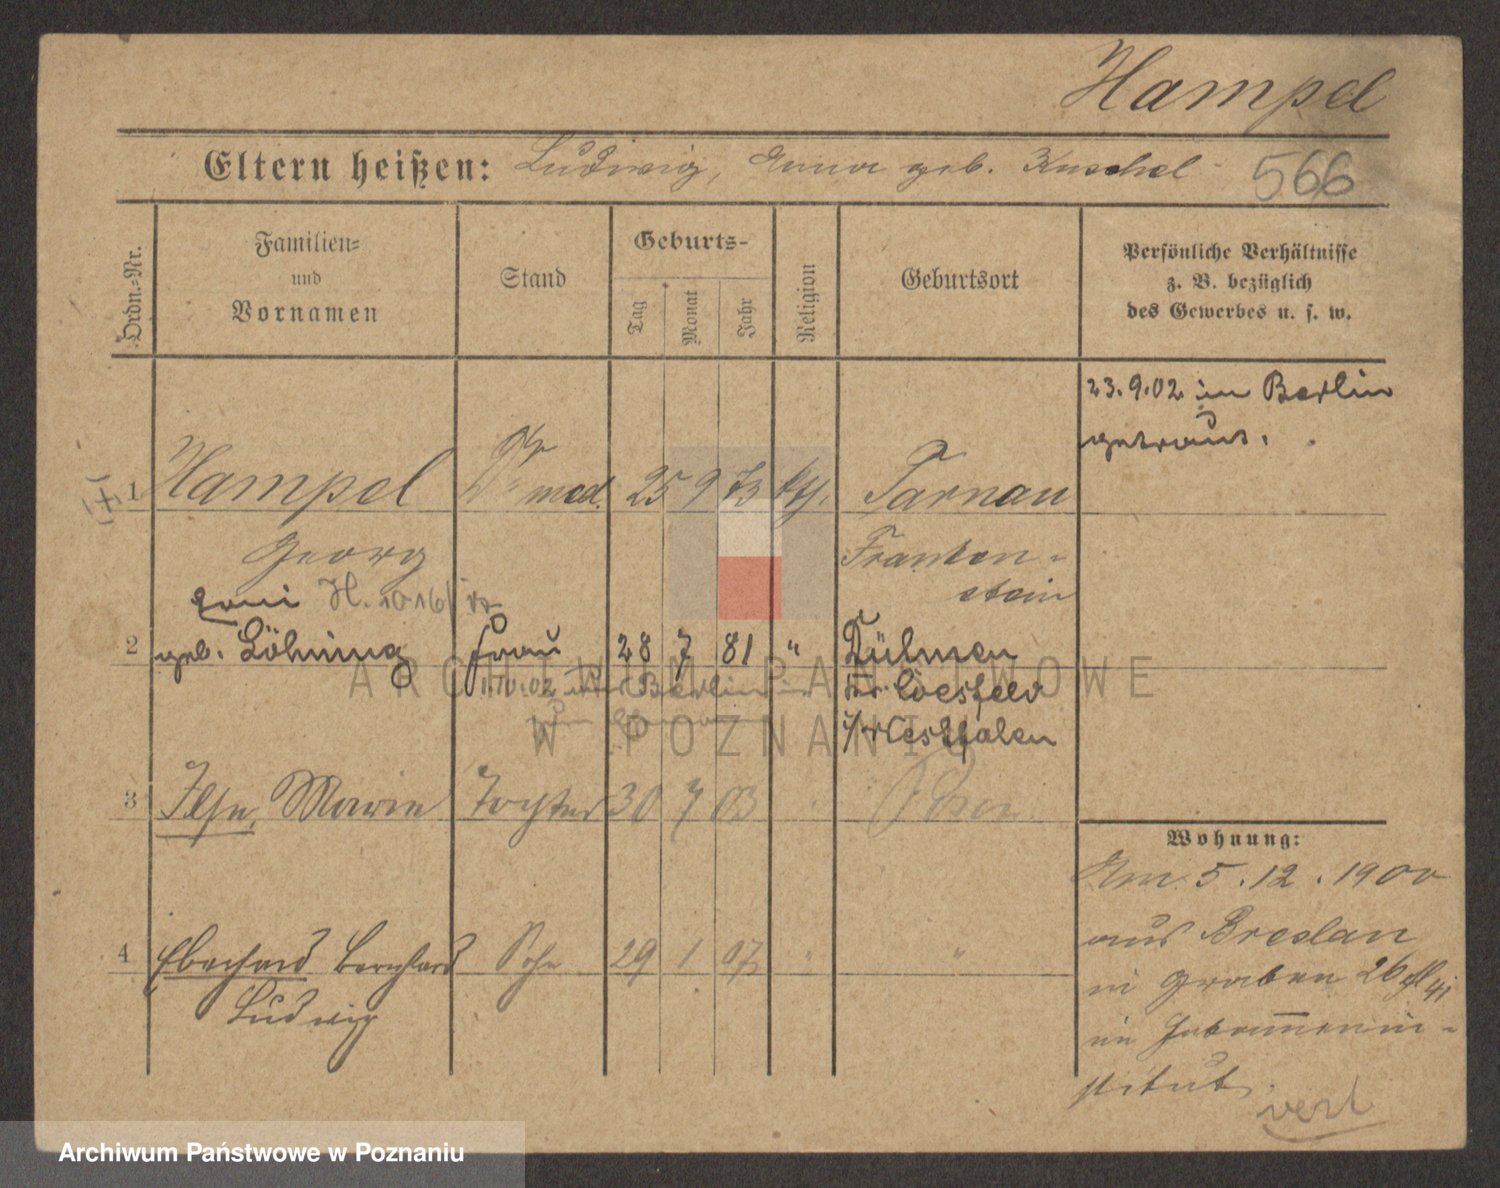 Hampel
Eltern heißen: Ludwig, Anna geb. Kuschel
566
Ordn.=Nr.
Familien=
und
Vornamen
Stand
Geburts-
Tag
Monat
Jahr
Religion
Geburtsort
Persönliche Verhältnisse
z. B. bezüglich
des Gewerbes u. s. w.
23.9.02 in Berlin
getraut.
1 Hampel Dr med. 25 9 73 kth. Tarnau
Georg Franken-
stein
H. 1016
2 geb. Löhning Frau 28 7 81 " Dülmen
1.10.02 Berlin Kr. Coesfeld
i/Westfalen
3 Ilse, Marie Tochter 30 7 03 Posen
4 Eberhard Bernhard Sohn 29 1 07 " "
Ludwig
Wohnung:
Am 5.12.1900
aus Breslau
in Graben 26
im Hebammenin-
stitut.
verh
ARCHIWUM PAŃSTWOWE
W POZNANIU
Archiwum Państwowe w Poznaniu